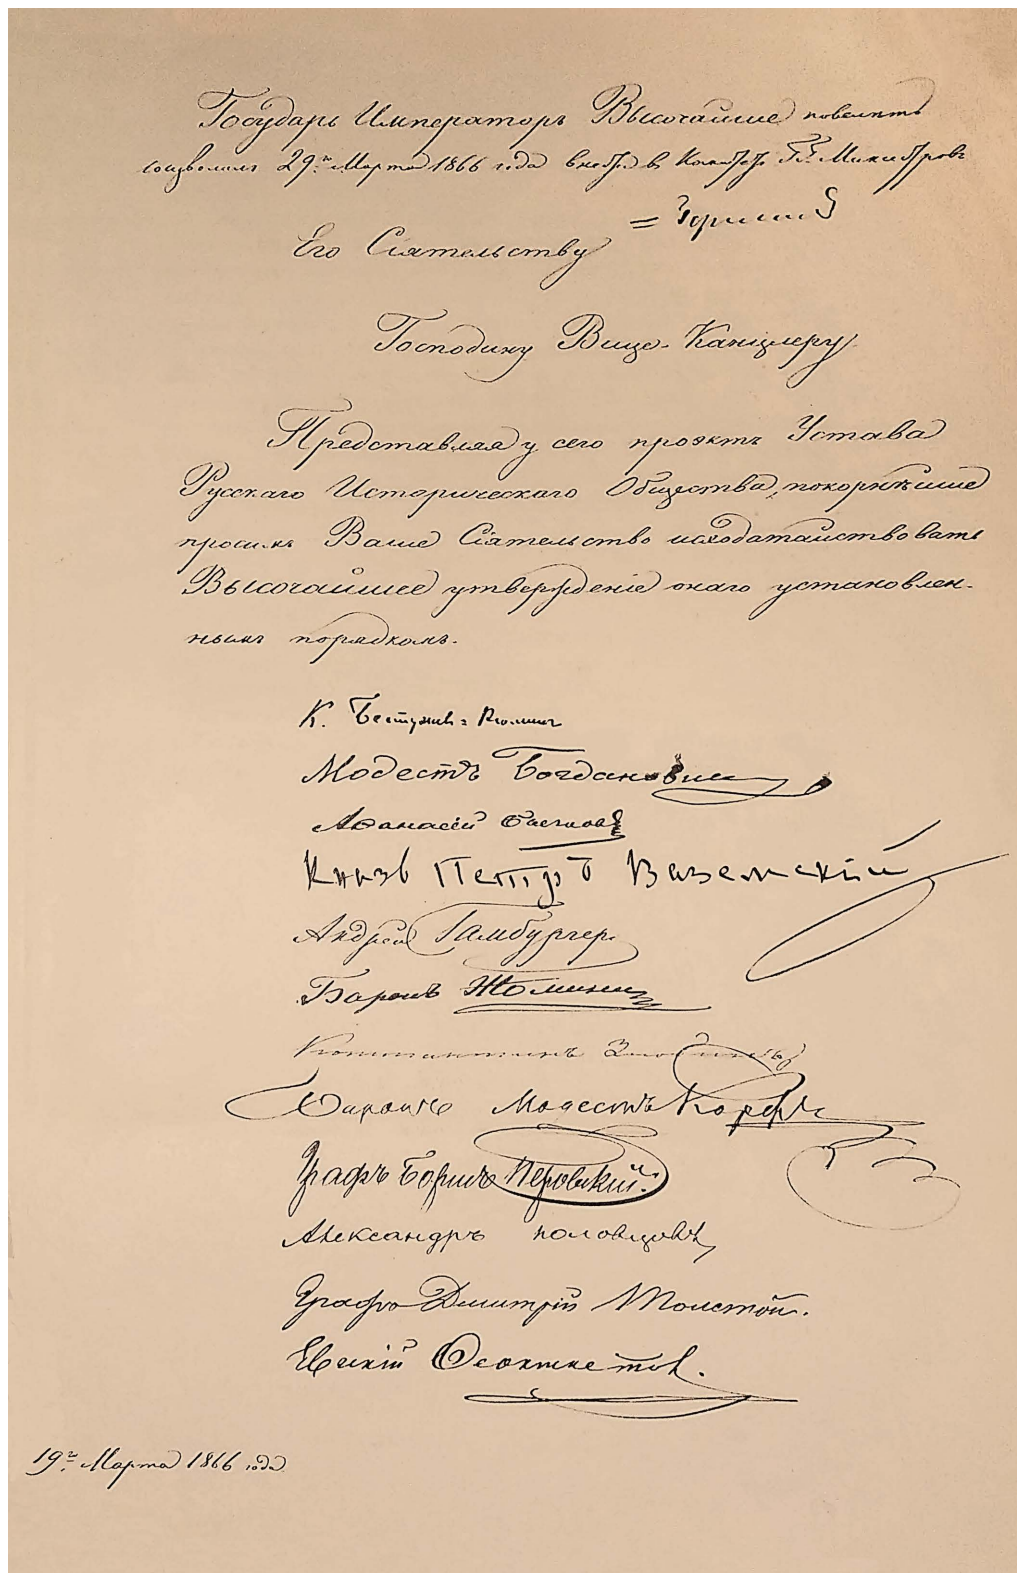 Государь Императоръ Высочайше повелѣть
соизволилъ 29го Марта 1866 года внести въ Комитетъ Гг. Министровъ
Его Сіятельству
Господину Вице-Канцлеру
Представляя у сего проэктъ Устава
Русскаго Историческаго Общества, покорнѣйше
просимъ Ваше Сіятельство исходатайствовать
Высочайшее утвержденіе онаго установлен-
нымъ порядкомъ.
К. Бестужевъ-Рюминъ
Модестъ Богдановичъ
Аѳанасій Бычковъ
Князь Петръ Вяземскій
Андрей Гамбургеръ
Баронъ Жомини
Константинъ Злобинъ
Баронъ Модестъ Корфъ
Графъ Борисъ Перовскій.
Александръ Половцовъ
Графъ Дмитрій Толстой.
Евгеній Ѳеоктистовъ.
19го Марта 1866 года